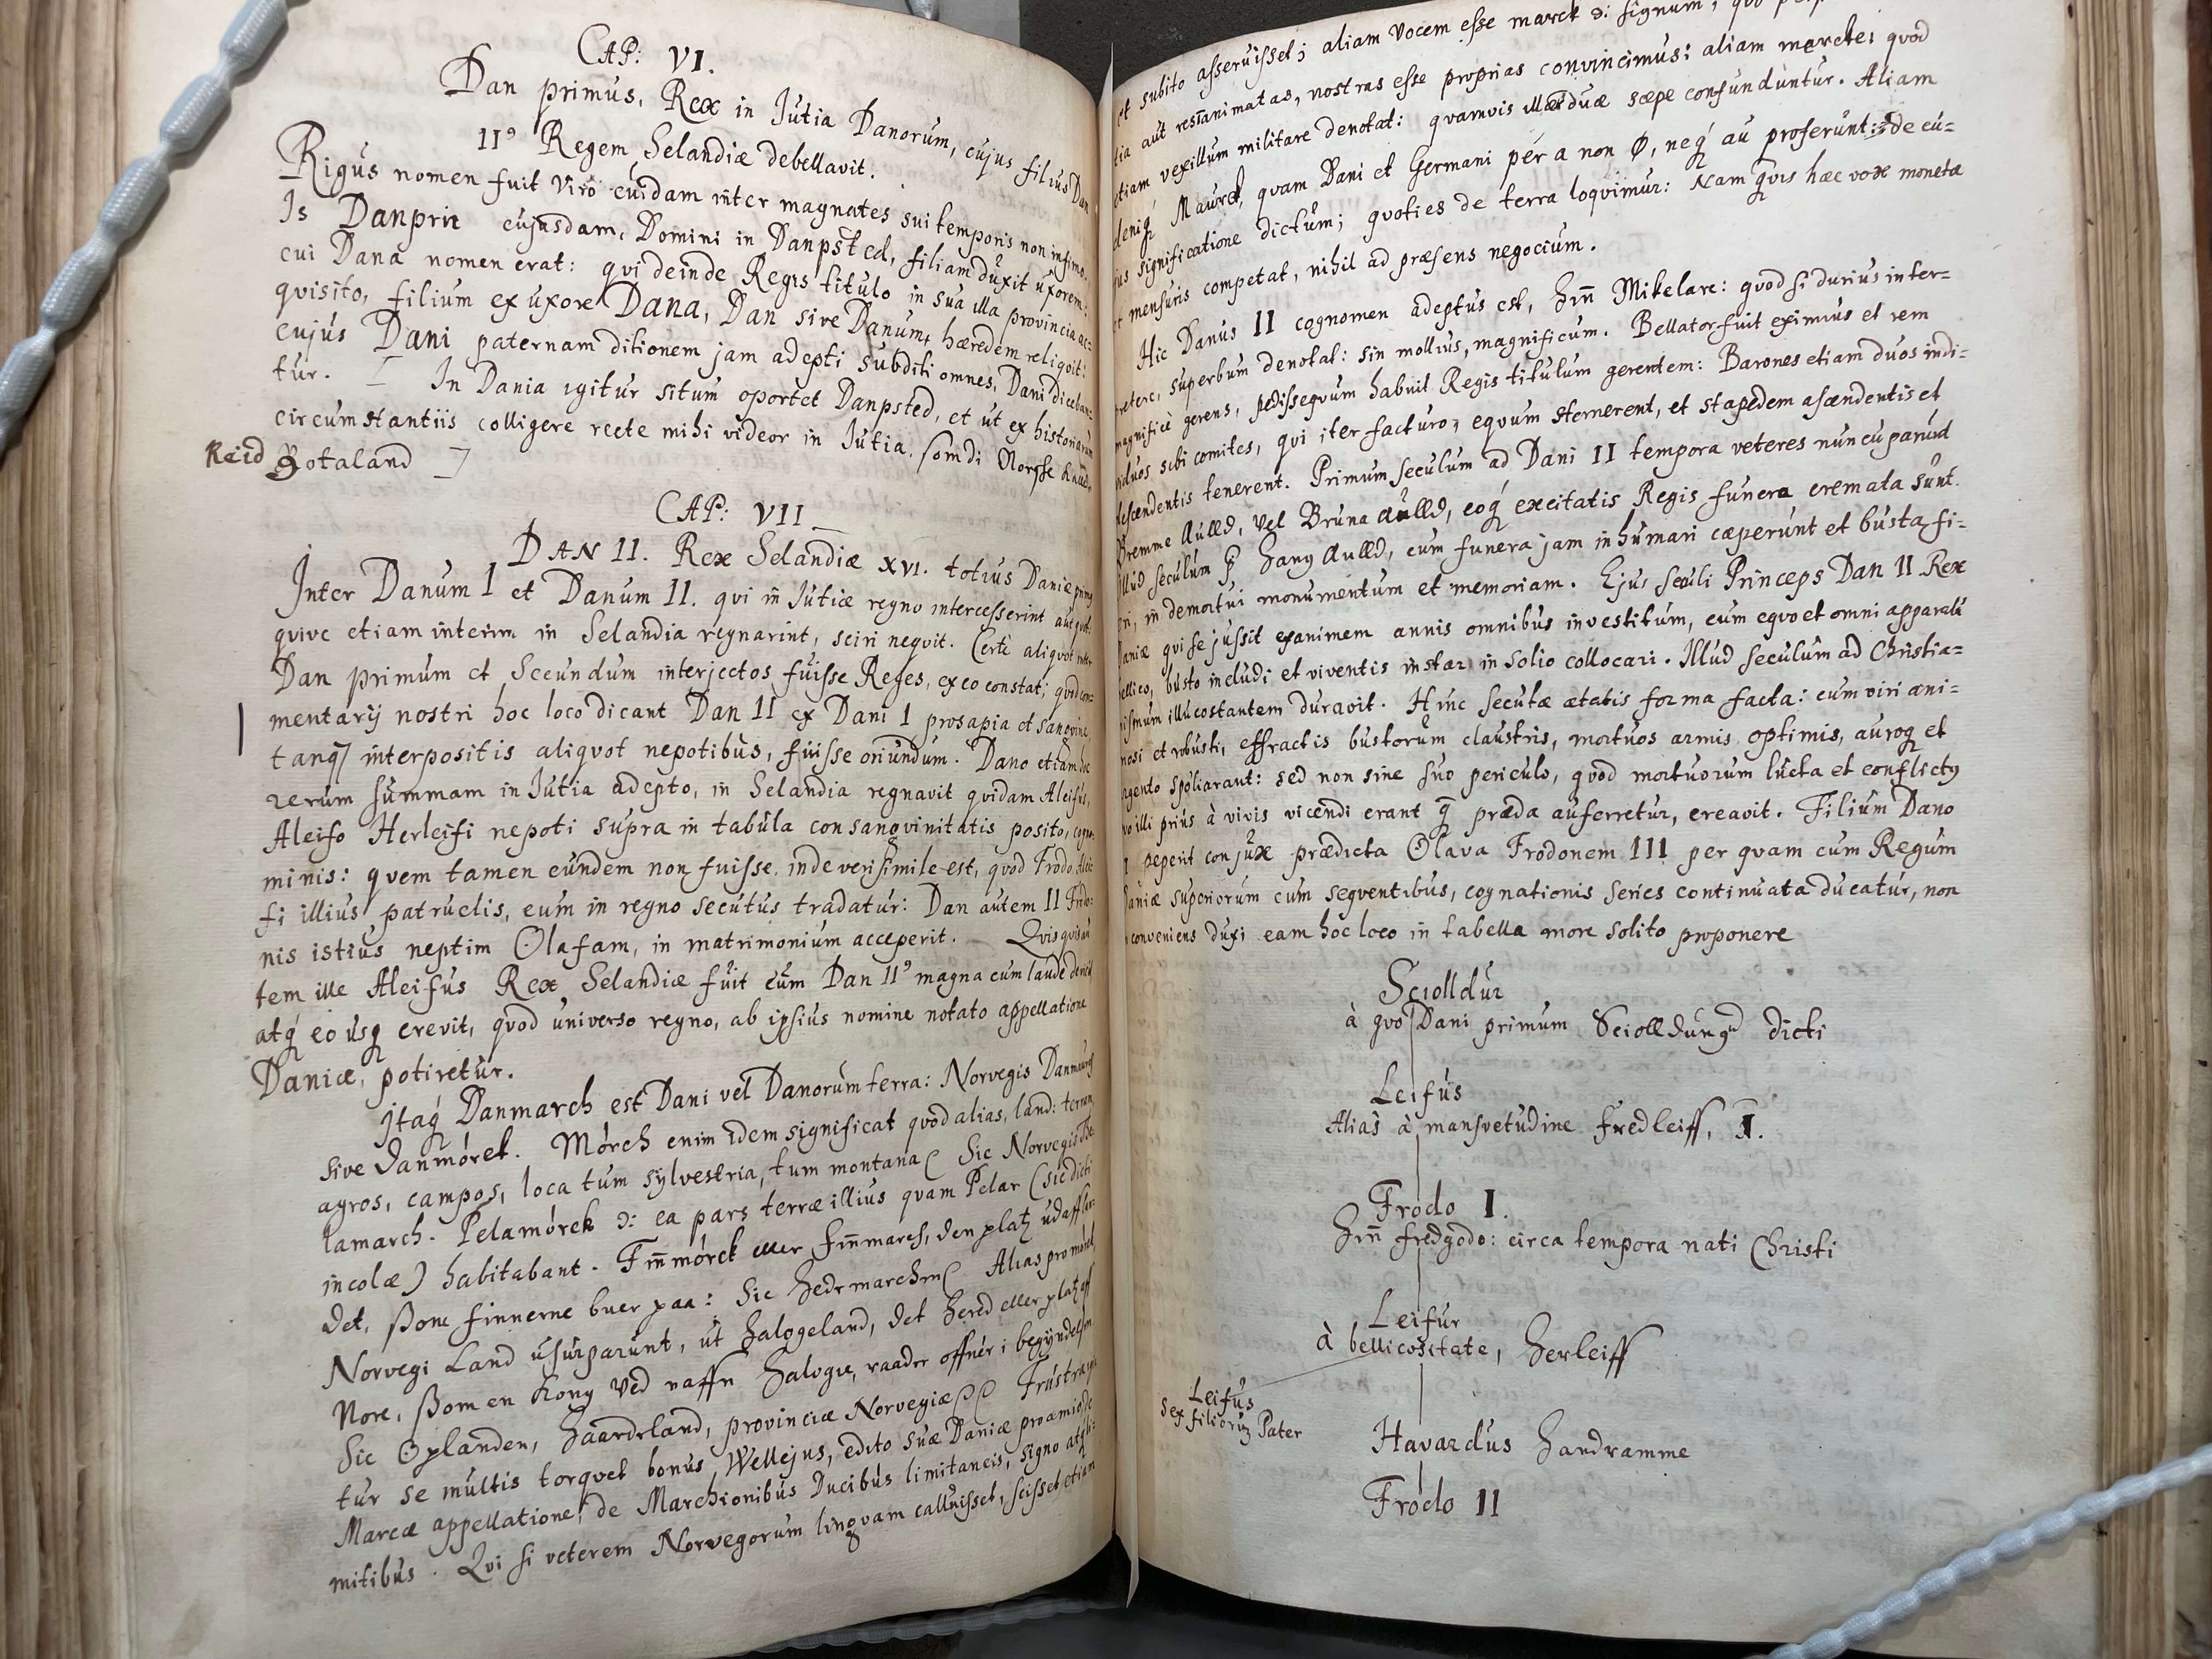 CAP: VI.
Dan primus, Rex in Jutia Danorum, cujus filius Dan
IIꝰ Regem Selandiæ debellavit.
Rigus nomen fuit viro cuidam inter magnates sui temporis non infimo.
Is Danprii cujusdam, Domini in Danpsted, filiam duxit uxorem:
cui Dana nomen erat: qvi deinde Regis titulo in sua illa provincia ac=
qvisito, filium ex uxore Dana, Dan sive Danum, hæredem reliqvit:
cujus Dani paternam ditionem jam adepti subditi omnes, Dani diceban=
tur. [ In Dania igitur situm oportet Danpsted, et ut ex historiarum
circumstantiis colligere recte mihi videor in Jutia, som di Norsse
Reid Gotaland ]
CAP: VII
DAN II. Rex Selandiæ XVI. totius Daniæ
Inter Danum I et Danum II. qvi in Jutiæ regno intercesserint aut
qvive etiam interim in Selandia regnarint, sciri neqvit. Certè aliqvot
Dan primum et Secundum interjectos fuisse Reges, ex eo constat; qvod com=
mentarij nostri hoc loco dicant Dan II ex Dani I prosapia et sangvine
tanq̃ interpositis aliqvot nepotibus, fuisse oriundum. Dano etiam
rerum summam in Jutia adepto, in Selandia regnavit qvidam Aleifus,
Aleifo Herleifi nepoti supra in tabula consangvinitatis posito, cogno=
minis: qvem tamen eundem non fuisse, inde verisimile est, qvod Frodo Alei=
fi illius patruelis, eum in regno secutus tradatur: Dan autem II Frodo=
nis istius neptim Olafam, in matrimonium acceperit. Qvisqvis au
tem ille Aleifus Rex Selandiæ fuit eum Dan IIꝰ magna cum laude devicit
atq́ eo usq́ crevit, qvod universo regno, ab ipsius nomine notato appellatione
Daniæ, potiretur.
Itaq́ Danmarch est Dani vel Danorum terra: Norvegis Danmaurch
sive Danmórck. Mórch enim idem significat qvod alias, land: terram,
agros, campos, loca tum sylvestria, tum montana( Sic Norvegis
lamarch. Pelamórck ɔ: ea pars terræ illius qvam Pelar (sic dicti
incolæ) habitabant. Fin̄mórck eller Fin̄march, den platz udaff
det, ßom finnerne boer paa: Sic Hedemarchen( Alias pro mórck
Norvegi Land usurparunt, ut Halogeland, det Hered eller platz aff
Nore, ßom en Kong ved naffn Halogie, raader offuer i begyndelsen
Sic Oplanden, Haardeland, provinciæ Norvegiæ(( Frustra
tur se multis torqvet bonus Wellejus, edito suæ Daniæ proæmio
Marcæ appellatione, de Marchionibus Ducibus limitaneis, signo
mitibus. Qvi si veterem Norvegorum lingvam calluisset, scisset etiam
et subito asseruisset; aliam vocem esse marck ɔ: signum,
tia aut res īanimatas, nostras esse proprias convincimus: aliam marcke: qvod
etiam vexillum militare denotat: qvamvis illæ duæ sæpe confunduntur. Aliam
deniq́ Maurck, qvam Dani et Germani per a non ø, neq́ au proferunt: de cu=
jus significatione dictum; qvoties de terra loqvimur: Nam qvis hæc vox monetæ
et mensuris competat, nihil ad præsens negocium.
Hic Danus II cognomen adeptus est, Hin̄ Mikelare: qvod si durius inter=
pretere, superbum denotat: sin mollius, magnificum. Bellator fuit eximius et rem
magnificè gerens, pedissequum habuit Regis titulum gerentem: Barones etiam duos indi=
viduos sibi comites, qvi iter facturo, eqvum sternerent, et stapedem ascendentis et
descendentis tenerent. Primum seculum ad Dani II tempora veteres nuncuparunt
Bremme Aulld, vel Bruna aulld, eoq́ excitatis Regis funera cremata sunt.
Illud seculum Haug Aulld, cum funera jam inhumari cæperunt et busta fi=
eri, in demortui monumentum et memoriam. Ejus seculi Princeps Dan II Rex
Daniæ qvi se jussit exanimem annis omnibus investitum, cum eqvo et omni apparatu
bellico, busto includi et viventis instar in solio collocari. Illud seculum ad Christia=
nismum illuc ostantem duravit. Hinc secutæ ætatis forma facta: cum viri ani=
mosi et robusti, effractis bustorum claustris, mortuos armis optimis, auroq́ et
argento spoliarant: sed non sine suo periculo, qvod mortuorum lucta et conflictꝰ
qvo illi prius à vivis vicendi erant q̃ præda auferretur, creavit. Filium Dano
II peperit conjux prædicta Olava Frodonem III per qvam cum Regum
Daniæ superiorum cum seqventibus, cognationis series continuata ducatur, non
inconveniens duxi eam hoc loco in tabella more solito proponere
Sciolldur
à qvo Dani primum Sciolldungr dicti
Leifus
Alias à mansvetudine Fredleiff, I.
Frodo I.
Hin̄ fredgodo: circa tempora nati Christi
Leifur
à bellicositate, Herleiff
Leifus
Sex filiorum Pater
Havardus Handramme
Frodo II